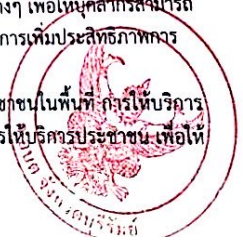 างๆ เพื่อให้บุคลากรสามารถ
การเพิ่มประสิทธิภาพการ
ชาชนในพื้นที่ การให้บริการ
รให้บริการประชาชน เพื่อให้
จังหวัดบุรีรัมย์